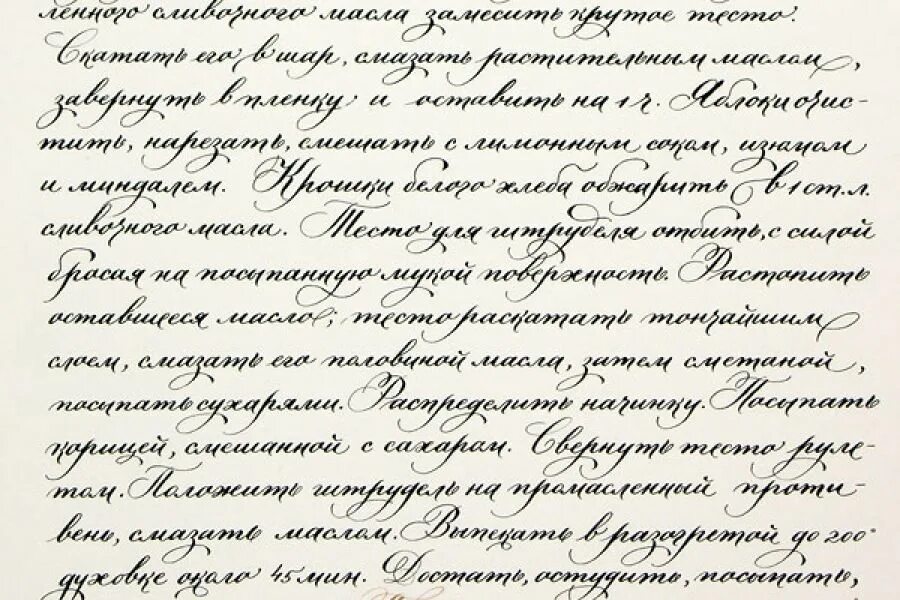 ленного сливочного масла замесить крутое тесто.
Скатать его в шар, смазать растительным маслом,
завернуть в пленку и оставить на 1 ч. Яблоки очис-
тить, нарезать, смешать с лимонным соком, изюмом
и миндалем. Крошки белого хлеба обжарить в 1 ст. л.
сливочного масла. Тесто для штруделя отбить, с силой
бросая на посыпанную мукой поверхность. Растопить
оставшееся масло; тесто раскатать тончайшим
слоем, смазать его половиной масла, затем сметаной,
посыпать сухарями. Распределить начинку. Посыпать
корицей, смешанной с сахаром. Свернуть тесто руле-
том. Положить штрудель на промасленный проти-
вень, смазать маслом. Выпекать в разогретой до 200°
духовке около 45 мин. Достать, остудить, посыпать,